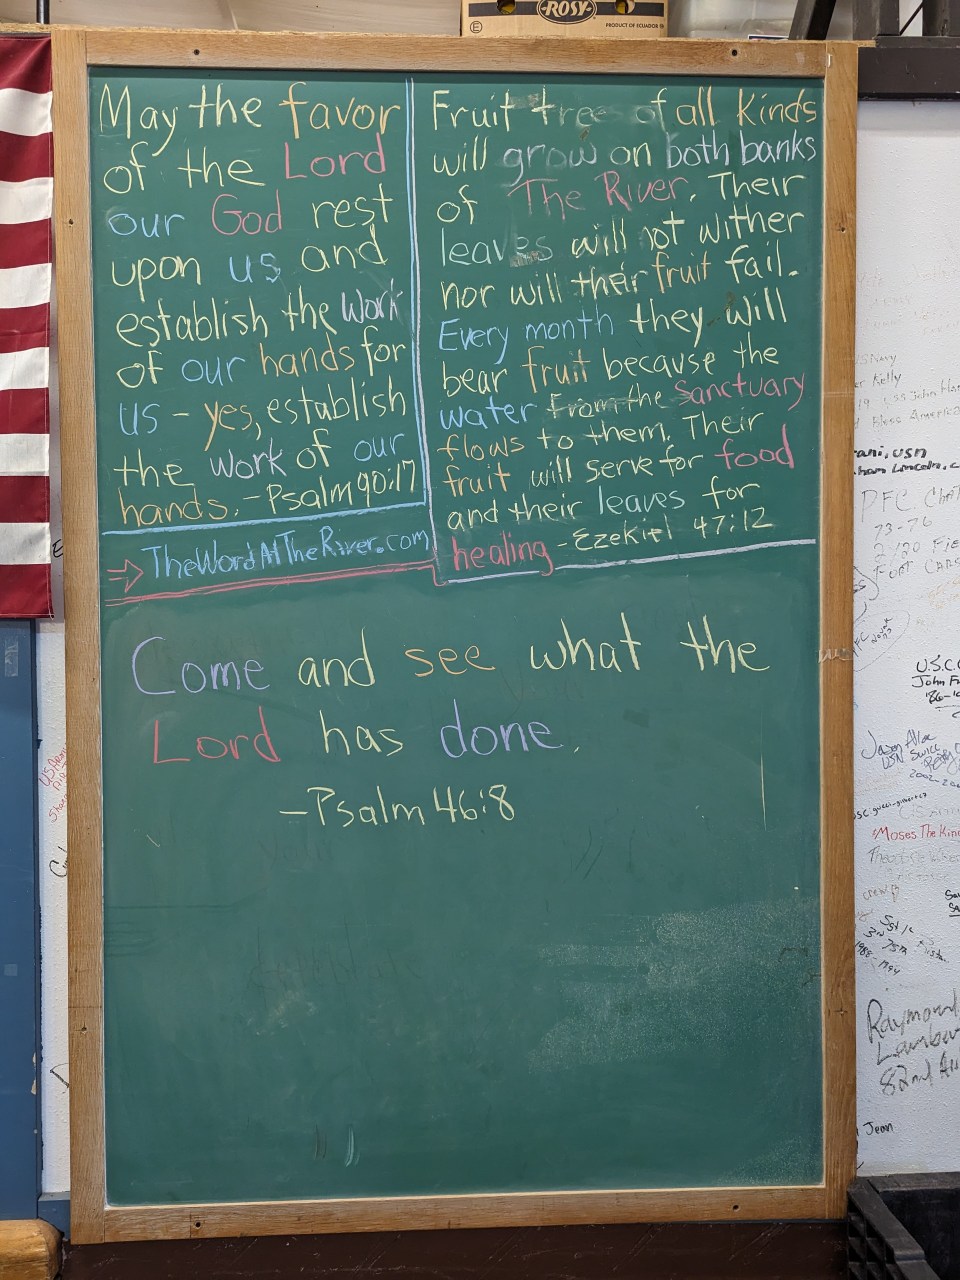 ROSY
PRODUCT OF ECUADOR
May the favor
of the Lord
our God rest
upon us and
establish the work
of our hands for
us - yes, establish
the work of our
hands. - Psalm 90:17
TheWordAtTheRiver.com
Fruit tree of all kinds
will grow on both banks
of The River. Their
leaves will not wither
nor will their fruit fail.
Every month they will
bear fruit because the
water from the Sanctuary
flows to them. Their
fruit will serve for food
and their leaves for
healing - Ezekiel 47:12
Come and see what the
Lord has done.
- Psalm 46:8
Kelly
John
Bless America
USN
PFC.
73-76
John
Jason
USN
Moses The
1988-1994
Raymond
82nd
Jean